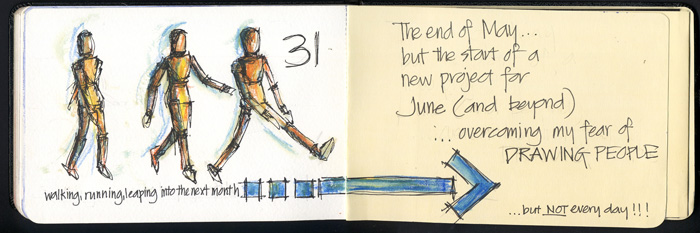 31
walking, running, leaping into the next month
The end of May...
but the start of a
new project for
June (and beyond)
... overcoming my fear of
DRAWING PEOPLE
...but NOT every day!!!